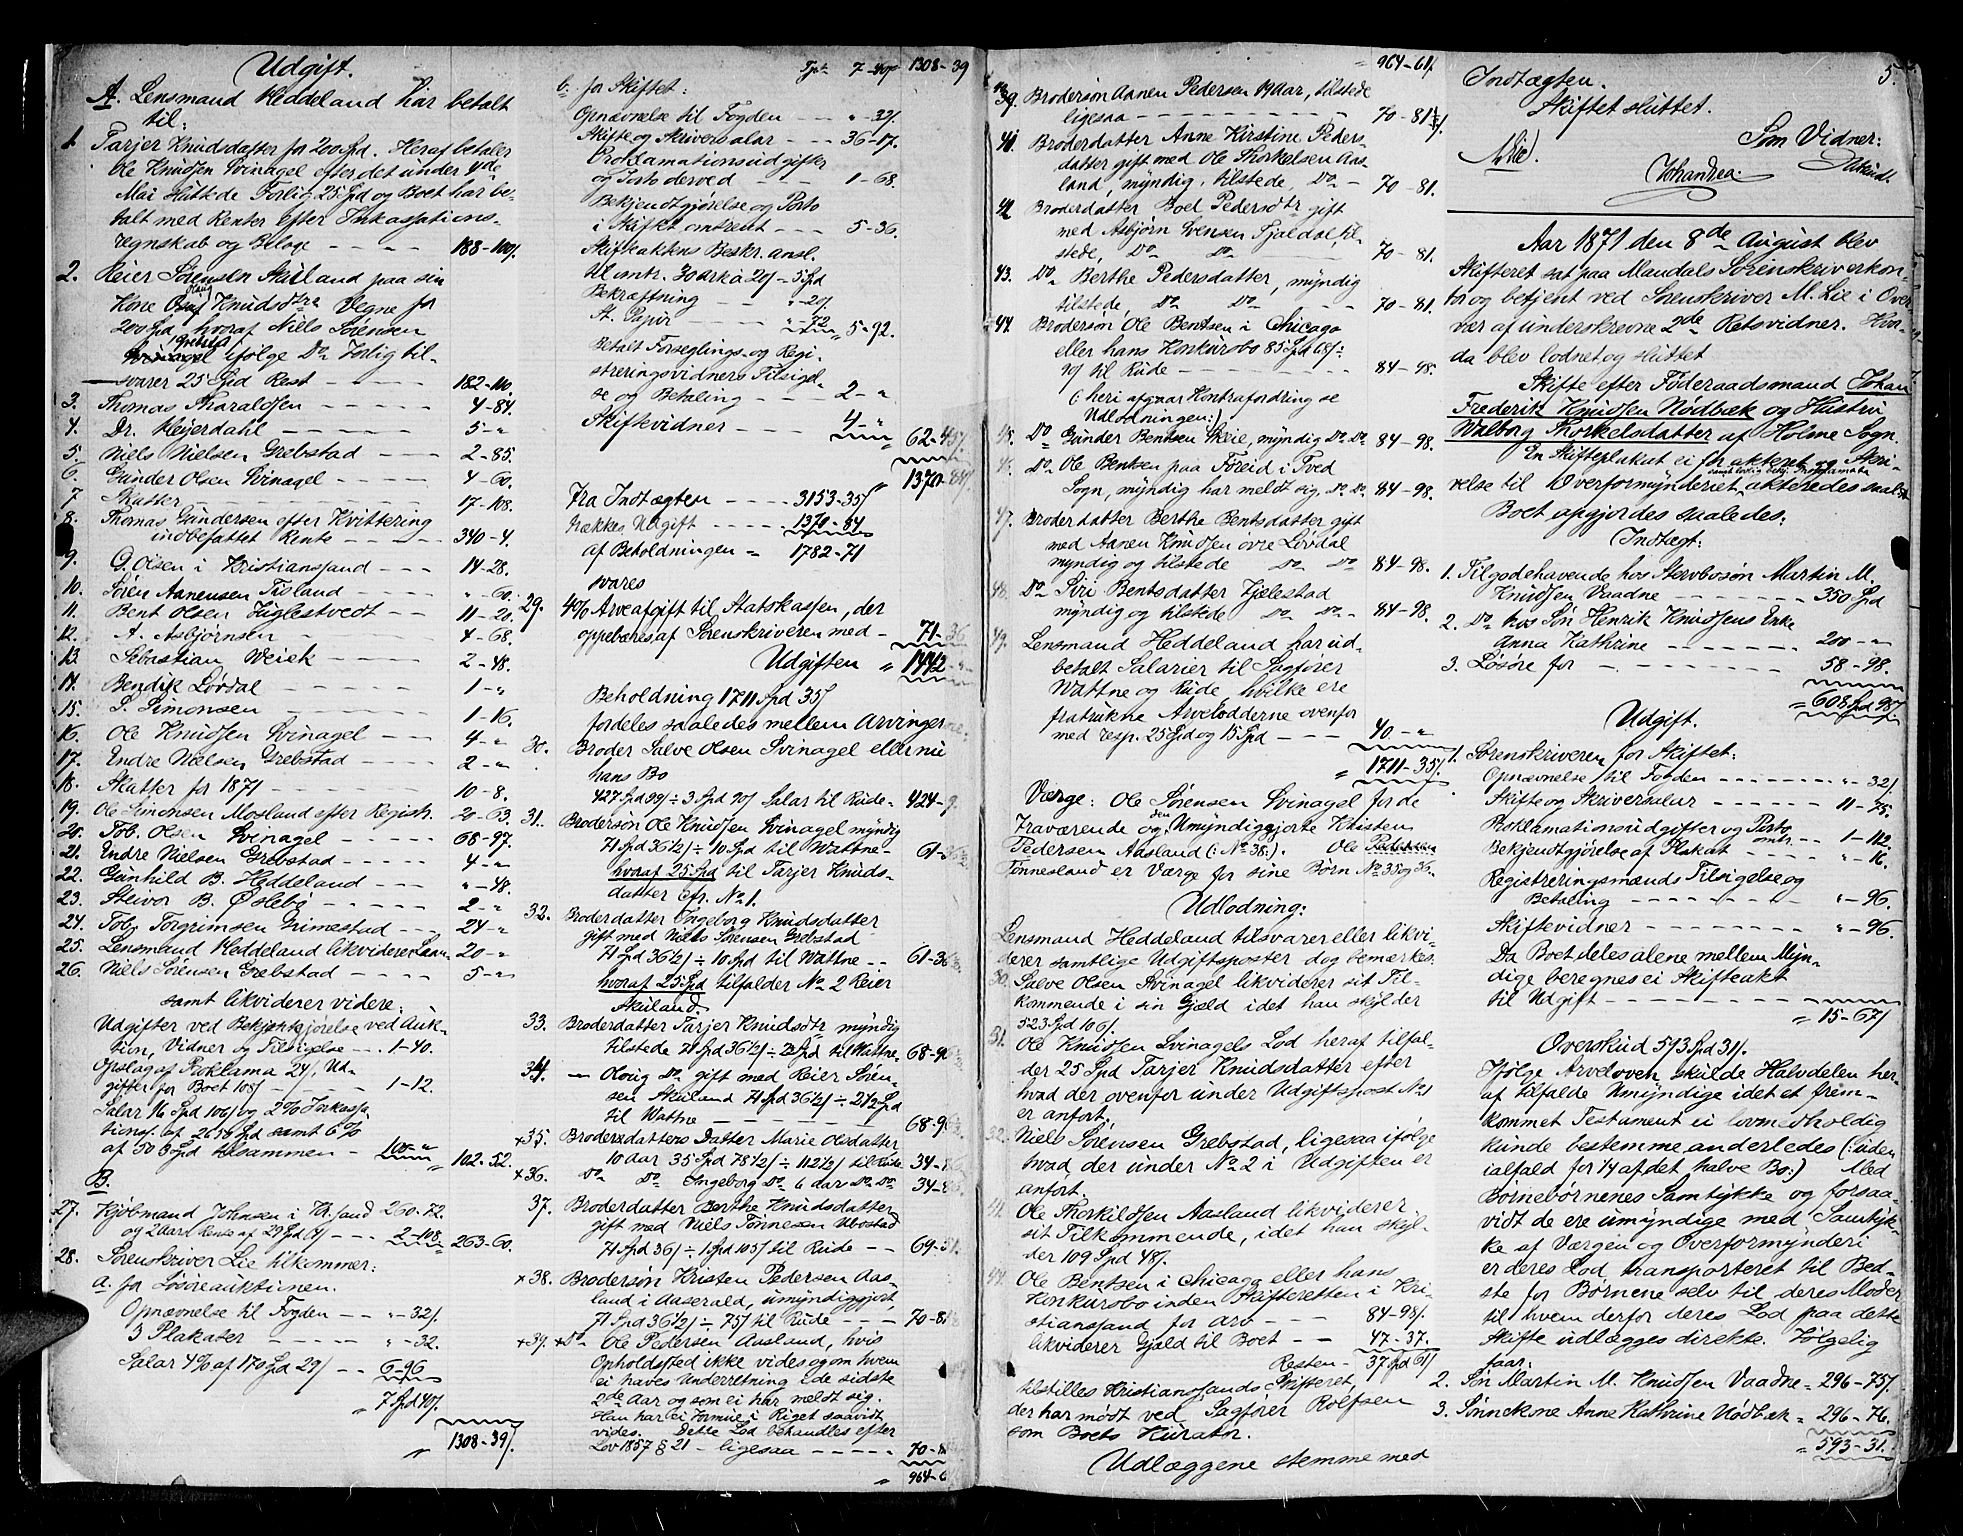 Udgift.
A. Lensmand Heddeland har betalt
til:
1. Tarjer Knudsdatter for 200 Spd. Heraf betaler
Ole Knudsen Svinagel efter det under 4de
Mai sluttede Forlig 25 Spd og Boet har be-
talt med Renter efter Inkassations-
regnskab og Belage - - - - 188-100/.
2. Reier Sørensen Skuland paa sin
Kone Knudsdtrs Vegne for
200 Spd, hvoraf Niels Sørensen
Grebstad ifølge Do Forlig til-
svarer 25 Spd Rest - - - - 182-110.
3. Thomas Tharaldsen - - - - 4-84.
4. Dr. Heyerdahl - - - - 5-"
5. Niels Nielsen Grebstad - - - 2-85.
6. Gunder Olsen Svinagel - - - 4-60.
7. Skatter - - - - 17-108.
8. Thomas Gundersen efter Kvittering
indbefattet Rente - - - - 340-4.
9. O. Olsen i Kristianssand - - - 14-28.
10. Søren Aanensen Tisland - - - "-60.
11. Bent Olsen Fuglestvedt - - 11-20.
12. A. Asbjørnsen - - - 4-68.
13. Sebastian Weick - - - 2-48.
14. Bendik Lørdal - - - 1-"
15. S. Simonsen - - - - 1-16.
16. Ole Knudsen Svinagel - - 4-"
17. Endre Nielsen Grebstad - - - 2-"
18. Skatter for 1871 - - - 10-8.
19. Ole Simonsen Mosland efter Regnsk. 20-63.
20. Tob. Olsen Svinagel - - - 68-97.
21. Endre Nielsen Grebstad - - - 4-"
22. Gunhild B. Heddeland - - - "-48.
23. Steivor B. Øslebø - - - - 2-"
24. Tob. Torgrimsen Grimestad - - 24-"
25. Lensmand Heddeland likviderer Laan 20-"
26. Niels Sørensen Grebstad - - - 5-"
samt likviderer videre:
Udgifter ved Bekjentgjørelse ved Auk-
tion, Vidner og Tilsigelse - - 1-40.
Opslag af Proklama 24/. Ud-
gifter for Boet 105/ - - - 1-12.
Salar 16 Spd 106/ og 2% Inkassa-
tionss. af 2639 Spd samt 6%
af 50 Spd tilsammen - 100-" 102-52.
B.
27. Kjøbmand Johnsen i Kr.sand 260-72.
og 2 Aars Rente af 29 Spd 9/ - - 2-108. 263-60.
28. Sørenskriver Lie tilkommer:
a. for Løsøreauktionen.
Opnævnelse til Fogden - - "-32/.
3 Plakater - - - "-32.
Salar 4% af 170 Spd 29/ - - 6-96
" 7 Spd 40/.
" 1308-39/.
Tpt 7-40/ 1308-39
b. for Skiftet:
Opnævnelse til Fogden - - "-32/.
Skifte og Skriversalar - - 36-17.
Proklamationsudgifter
og Porto derved - - 1-68.
Bekjendtgjørelse og Porto
i Skiftet omtrent - - 5-36.
Skifteaktens Beskr. ansl.
til omtr. 30 Ark à 20/ - 5 Spd
Bekræftning - "-20/
St. Papir - - "-72 5-92.
Betalt Forseglings- og Regi-
streringsvidners Tilsigel-
se og Betaling - - - 2-"
Skiftevidner - - - 4-" 62-45/.
" 1370-84/.
Fra Indtægten - - - 3153-35/
trækkes Udgift - - - 1370-84
af Beholdningen = 1782-71
svares
29. 4% Arveafgift til Statskassen, der
oppebæres af Sørenskriveren med - 71-36
Udgiften " 1442-"
Beholdning 1711 Spd 35/
fordeles saaledes mellem Arvingerne:
30. Broder Salve Olsen Svinagel eller nu
hans Bo
427 Spd 99/ ÷ 3 Spd 90/ Salar til Rude - 424-9.
31. Brodersøn Ole Knudsen Svinagel myndig
71 Spd 36 1/2/ ÷ 10 Spd til Wattne - 61-36
hvoraf 25 Spd til Tarjer Knuds-
datter cfr. No 1.
32. Broderdatter Ingeborg Knudsdatter
gift med Niels Sørensen Grebstad
71 Spd 36 1/2/ ÷ 10 Spd til Wattne - - 61-36
hvoraf 25 Spd tilfalder No 2 Reier
Skuland.
33. Broderdatter Tarjer Knudsdtr myndig
tilstede 71 Spd 36 1/2/ ÷ 2 1/2 Spd til Wattne - 68-96
34. — Olovig Do gift med Reier Søren-
sen Skuland 71 Spd 36 1/2/ ÷ 2 1/2 Spd
til Wattne - - - - 68-96
+35. Broderdatters Datter Marie Olsdatter
10 Aar 35 Spd 78 1/2/ ÷ 112 1/2/ til Rude 34-
+36. Do Do Ingeborg Do 6 Aar Do Do 34-
37. Broderdatter Berthe Knudsdatter
gift med Niels Tønnesen Ubostad
71 Spd 36/ ÷ 1 Spd 105/ til Rude - - 69-51
+38. Brodersøn Kristen Pedersen Aas-
land i Aaserald, umyndiggjort,
71 Spd 36 1/2/ ÷ 75/ til Rude - - 70-81
+39. +Do Ole Pedersen Aasland, hvis
Opholdsted ikke vides og om hvem
ei haves Underretning i de sidste
2de Aar og som ei har meldt sig.
Han har ei Formue i Riget saavidt
vides. Dette Lod behandles efter
Lov 1857 § 21 - ligesaa - - - 70-
" 964-6
" 964-61/.
39. Brodersøn Aanen Pedersen 19 Aar, tilstede
ligesaa - - - - 70-81 1/2/.
41. Broderdatter Anne Kirstine Peders-
datter gift med Ole Thorkelsen Aas-
land, myndig, tilstede, Do - 70-81.
42. Broderdatter Boel Pedersdtr gift
med Asbjørn Evensen Fjeldal, til-
stede, Do Do - 70-81.
43. Do Berthe Pedersdatter, myndig
tilstede, Do Do - 70-81.
44. Brodersøn Ole Bentsen i Chicago
eller hans Konkursbo 85 Spd 68/ ÷
90/ til Rude - - - 84-98.
(: heri afgaar Kontrafordring se
Udlodningen:)
45. Do Gunder Bentsen Skeie, myndig Do Do 84-98.
46. Do Ole Bentsen paa Føreid i Tved
Sogn, myndig har meldt sig, Do Do 84-98.
47. Broderdatter Berthe Bentsdatter gift
med Aanen Knudsen øvre Lørdal
myndig og tilstede Do Do 84-98.
48. Do Siri Bentsdatter Fjelestad
myndig og tilstede Do Do - 84-98.
49. Lensmand Heddeland har ud-
betalt Salarier til Sagfører
Wattne og Rude, hvilke ere
fratrukne Arvelodderne ovenfor
med resp. 25 Spd og 15 Spd - - - 40-"
" 1711-35/.
Værge: Ole Sørensen Svinagel for de
fraværende og den Umyndiggjorte Kristen
Pedersen Aasland (: No 38:). Ole
Tønnesland er Værge for sine Børn No 35 og 36.
Udlodning:
Lensmand Heddeland tilsvarer eller likvi-
derer samtlige Udgiftsposter dog bemærkes.
30. Salve Olsen Svinagel likviderer sit Til-
kommende i sin Gjæld idet han skylder
523 Spd 106/.
31. Ole Knudsen Svinagels Lod heraf tilfal-
der 25 Spd Tarjer Knudsdatter efter
hvad der ovenfor under Udgiftspost No 1
er anført.
32. Niels Sørensen Grebstad, ligesaa ifølge
hvad der under No 2 i Udgiften er
anført.
41. Ole Thorkildsen Aasland likviderer
sit Tilkommende, idet han skyl-
der 109 Spd 48/.
44. Ole Bentsen i Chicago eller hans
Konkursbo inden Skifteretten i Kri-
stianssand for Arv - - - 84-98/.
likviderer Gjæld til Boet - - 47-37.
Resten - 37 Spd 61/
tilstilles Kristianssands Skifteret,
der har mødt ved Sagfører Rolfsen
som Boets Kurator.
Udlæggene stemme med
5.
Indtægten.
Skiftet sluttet.
Som Vidner:
MLie.
Johandsea.
Aar 1871 den 8de August blev
Skifteret sat paa Mandals Sørenskriverkon-
tor og betjent ved Sørenskriver M. Lie i Over-
vær af underskrevne 2de Retsvidner. Hvor-
da blev lodnet og sluttet
Skifte efter Føderaadsmand Johan
Frederik Knudsen Nødbæk og Hustru
Walborg Thorkelsdatter af Holme Sogn.
En Skifteplakat ei før akteret og Skri-
velse til Overformynderiet akteredes saalst
Boet opgjordes saaledes:
Indtægt:
1. Tilgodehavende hos Stervbosøn Martin M.
Knudsen Vaadne - - - 350 Spd
2. Do hos Søn Henrik Knudsens Enke
Anna Kathrine - - - 200-"
3. Løsøre for - - - 58-98.
" 608 Spd 98/
Udgift.
1. Sørenskriveren for Skiftet:
Opnævnelse til Fogden - - - "-32/.
Skifte og Skriversalar - - - 11-75.
Proklamationsudgifter og Porto omtr. 1-112.
Bekjendtgjørelse af Plakat - - "-16.
Registreringsmænds Tilsigelse og
Betaling - - - - "-96.
Skiftevidner - - - "-96.
Da Boet deles alene mellem Myn-
dige beregnes ei Skifteakt
til Udgift - - - -
" 15-67/
Overskud 593 Spd 31/.
Ifølge Arveloven skulde Halvdelen her-
af tilfalde Umyndige idet et frem-
kommet Testament ei lovmedholdig
kunde bestemme anderledes (: uden
ialfald for 1/4 af det halve Bo:) Med
Børnebørnenes Samtykke og forsaa-
vidt de ere umyndige med Samtyk-
ke af Værgen og Overformynderi
er deres Lod transporteret til Bed-
ste for Børnene selv til deres Moder
til hvem derfor deres Lod paa dette
Skifte udlægges direkte. Følgelig
faar:
2. Søn Martin M. Knudsen Vaadne = 296-75/.
3. Sønnekone Anne Kathrine Nødbæk = 296-76.
" 593-31.